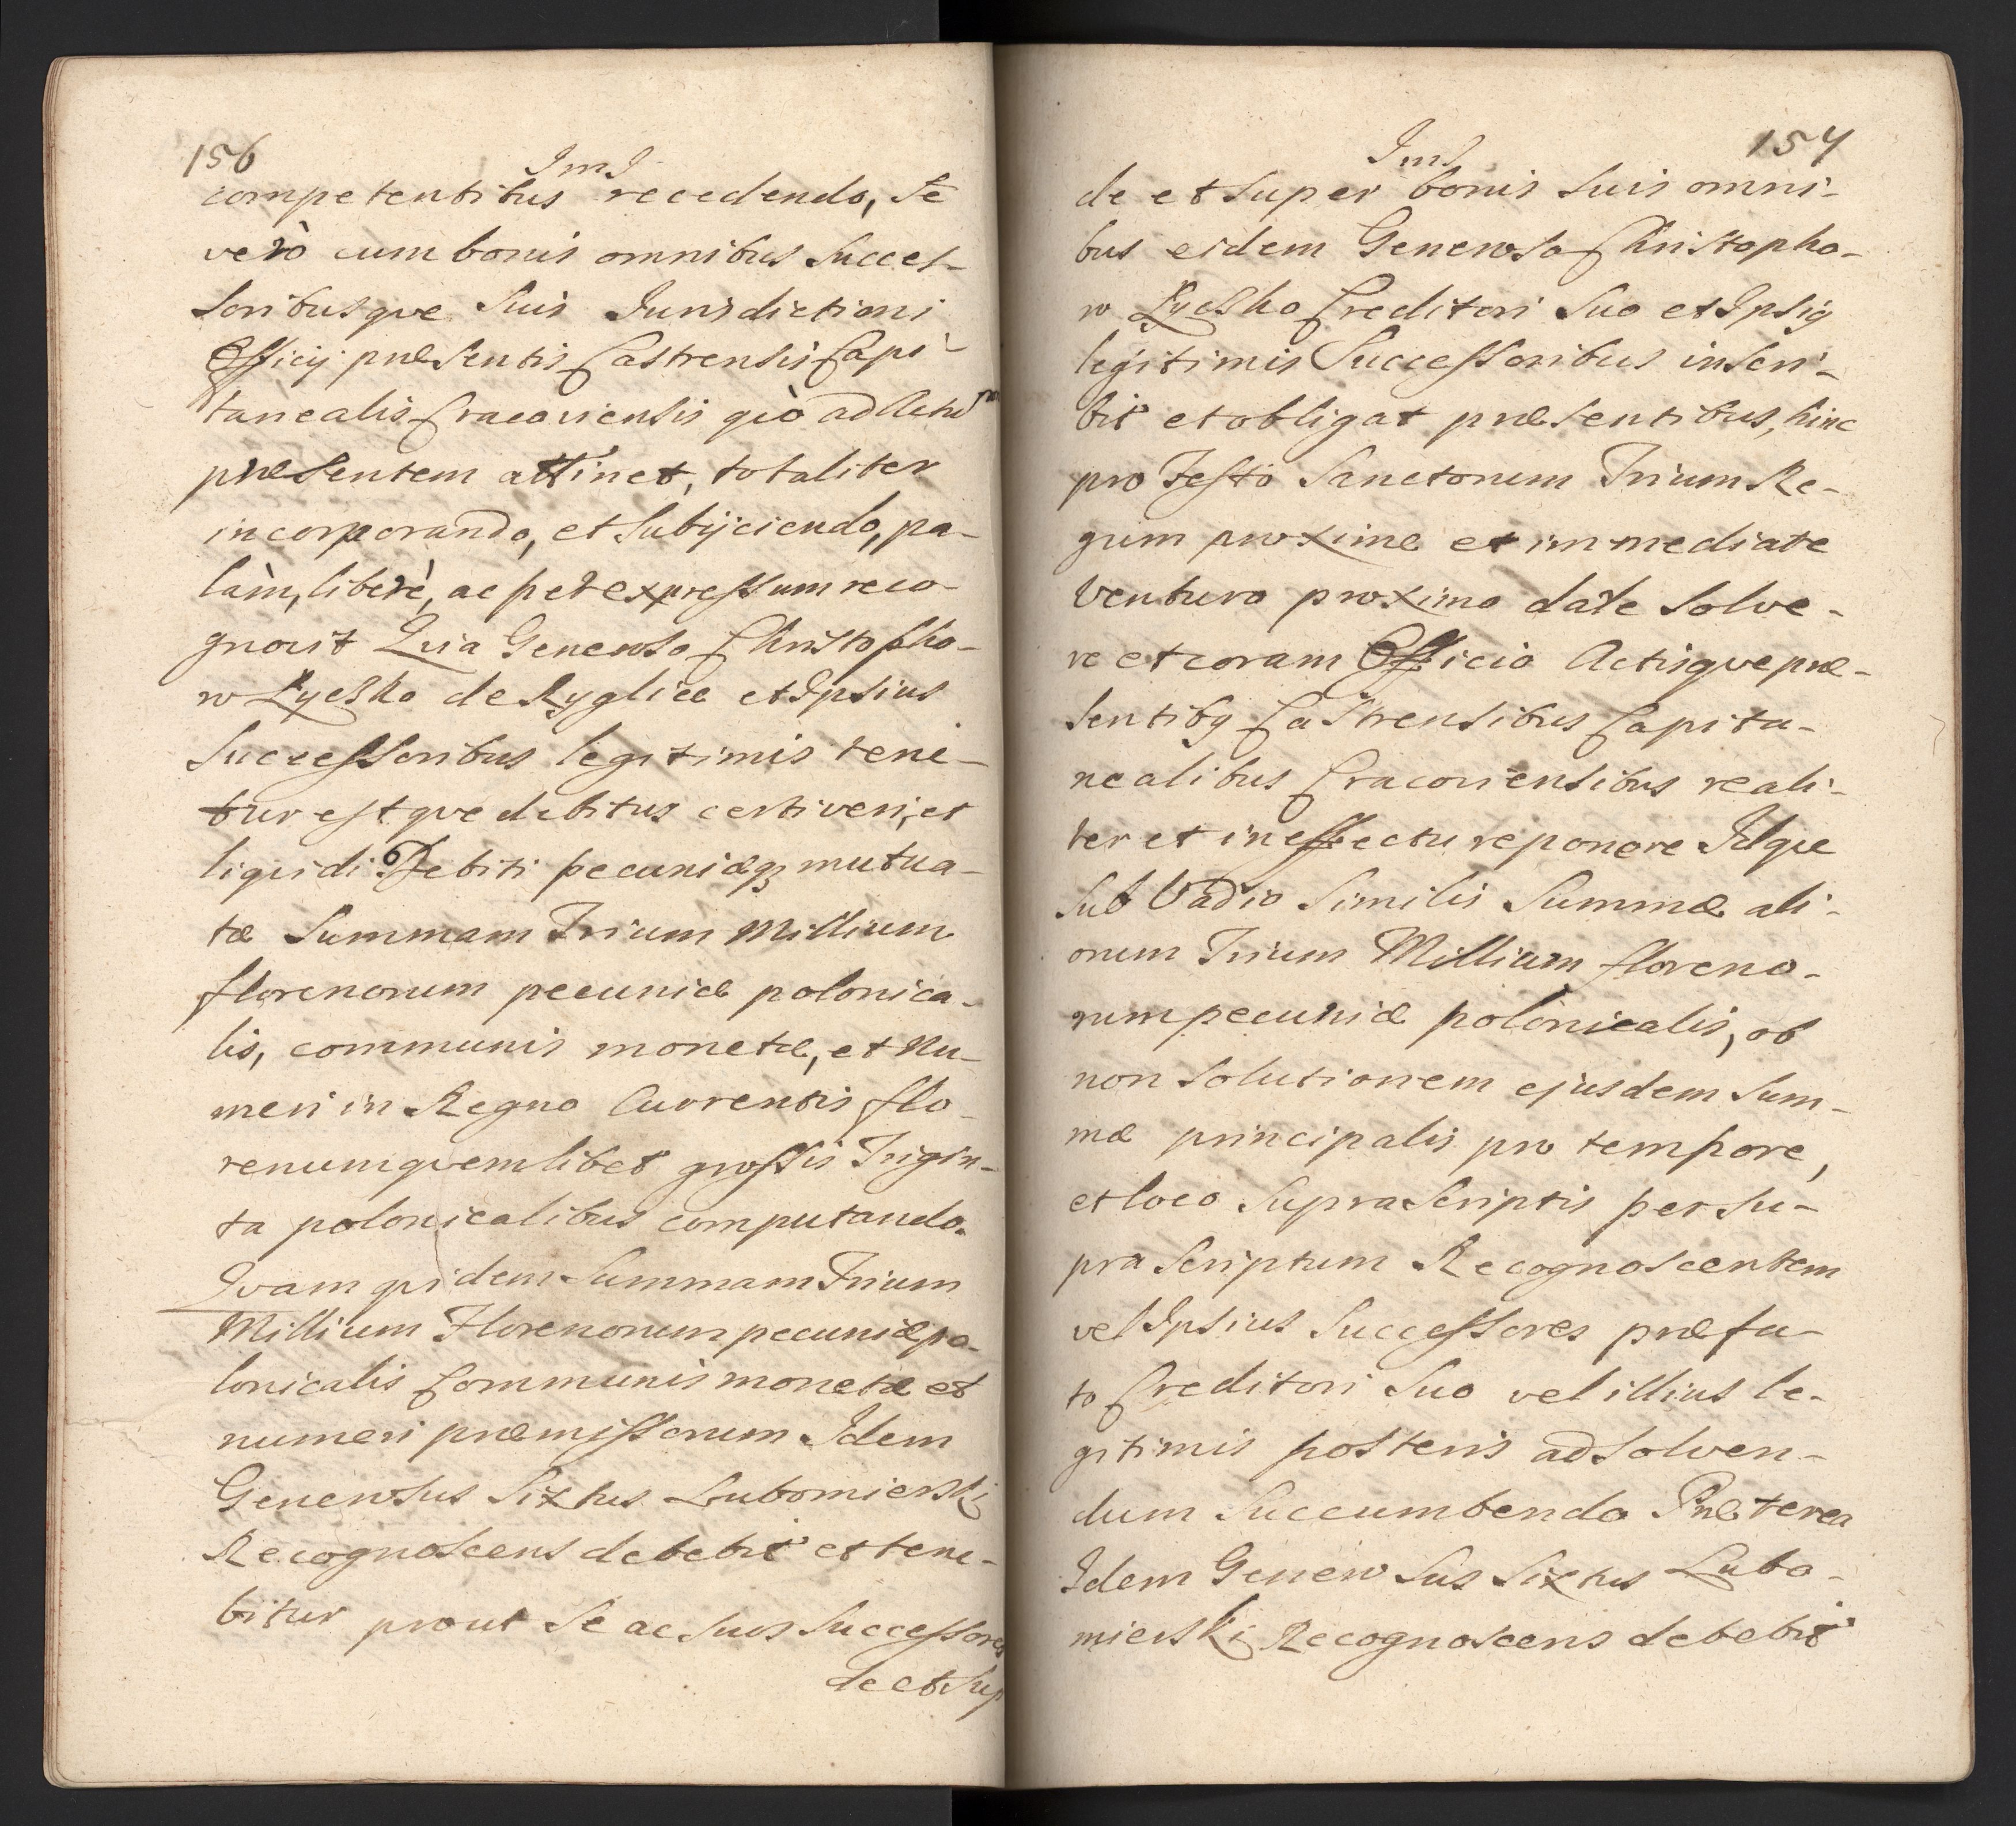 156
ImJ
competentibus recedendo, Se
verò cum bonis omnibus Succes-
soribusque Suis Jurisdictioni
Officij præsentis Castrensis Capi-
tanealis Cracoviensis qùo ad Actum
præsentem attinet, totaliter
incorporando, et Subijciendo, pa-
làm, liberè, ac per expressum reco-
gnovit Quia Generoso Christopho-
ro Łyczko de Ryglice et Ipsius
Successoribus legitimis tene-
tur estque debitus certi veri, et
liquidi Debiti pecuniæq3 mutua-
tæ Summam Trium Millium
florenorum pecuniæ polonica-
lis, communis monetæ, et Nu-
meri in Regno Currentis flo-
renum quemlibet grossis Trigin-
ta polonicalibus computando.
Quam quidem Summam Trium
Millium Florenorum pecuniæ po-
lonicalis Communis monetæ et
numeri præmissorum Idem
Generosus Sixtus Lubomierski
Recognoscens debebit et tene-
bitur prout Se ac Suos Successores
de et Sup
157
ImJ
de et Super bonis Suis omni-
bus eidem Generoso Christopho-
ro Łyczko Creditori Suo et Ipsiq
legitimis Successoribus inscri-
bit et obligat præsentibus, hinc
pro Festo Sanctorum Trium Re-
gum proxime et immediate
Venturo proximo date Solve-
re et coram Officio Actisque præ-
sentibq Castrensibus Capita-
nealibus Cracoviensibus reali-
ter et in effectu reponere Idque
Sub Vadio Similis Summæ ali-
orum Trium Millium floreno-
rum pecuniæ polonicalis, ob
non Solutionem ejusdem Sum-
mæ principalis pro tempore,
et loco Suprascriptis per Su-
pra Scriptum Recognoscentem
vel Ipsius Successores præfa-
to Creditori Suo vel illius le-
gitimis posteris ad Solven-
dum Succumbendo Præterea
Idem Generosus Sixtus Lubo-
mierski Recognoscens debebit